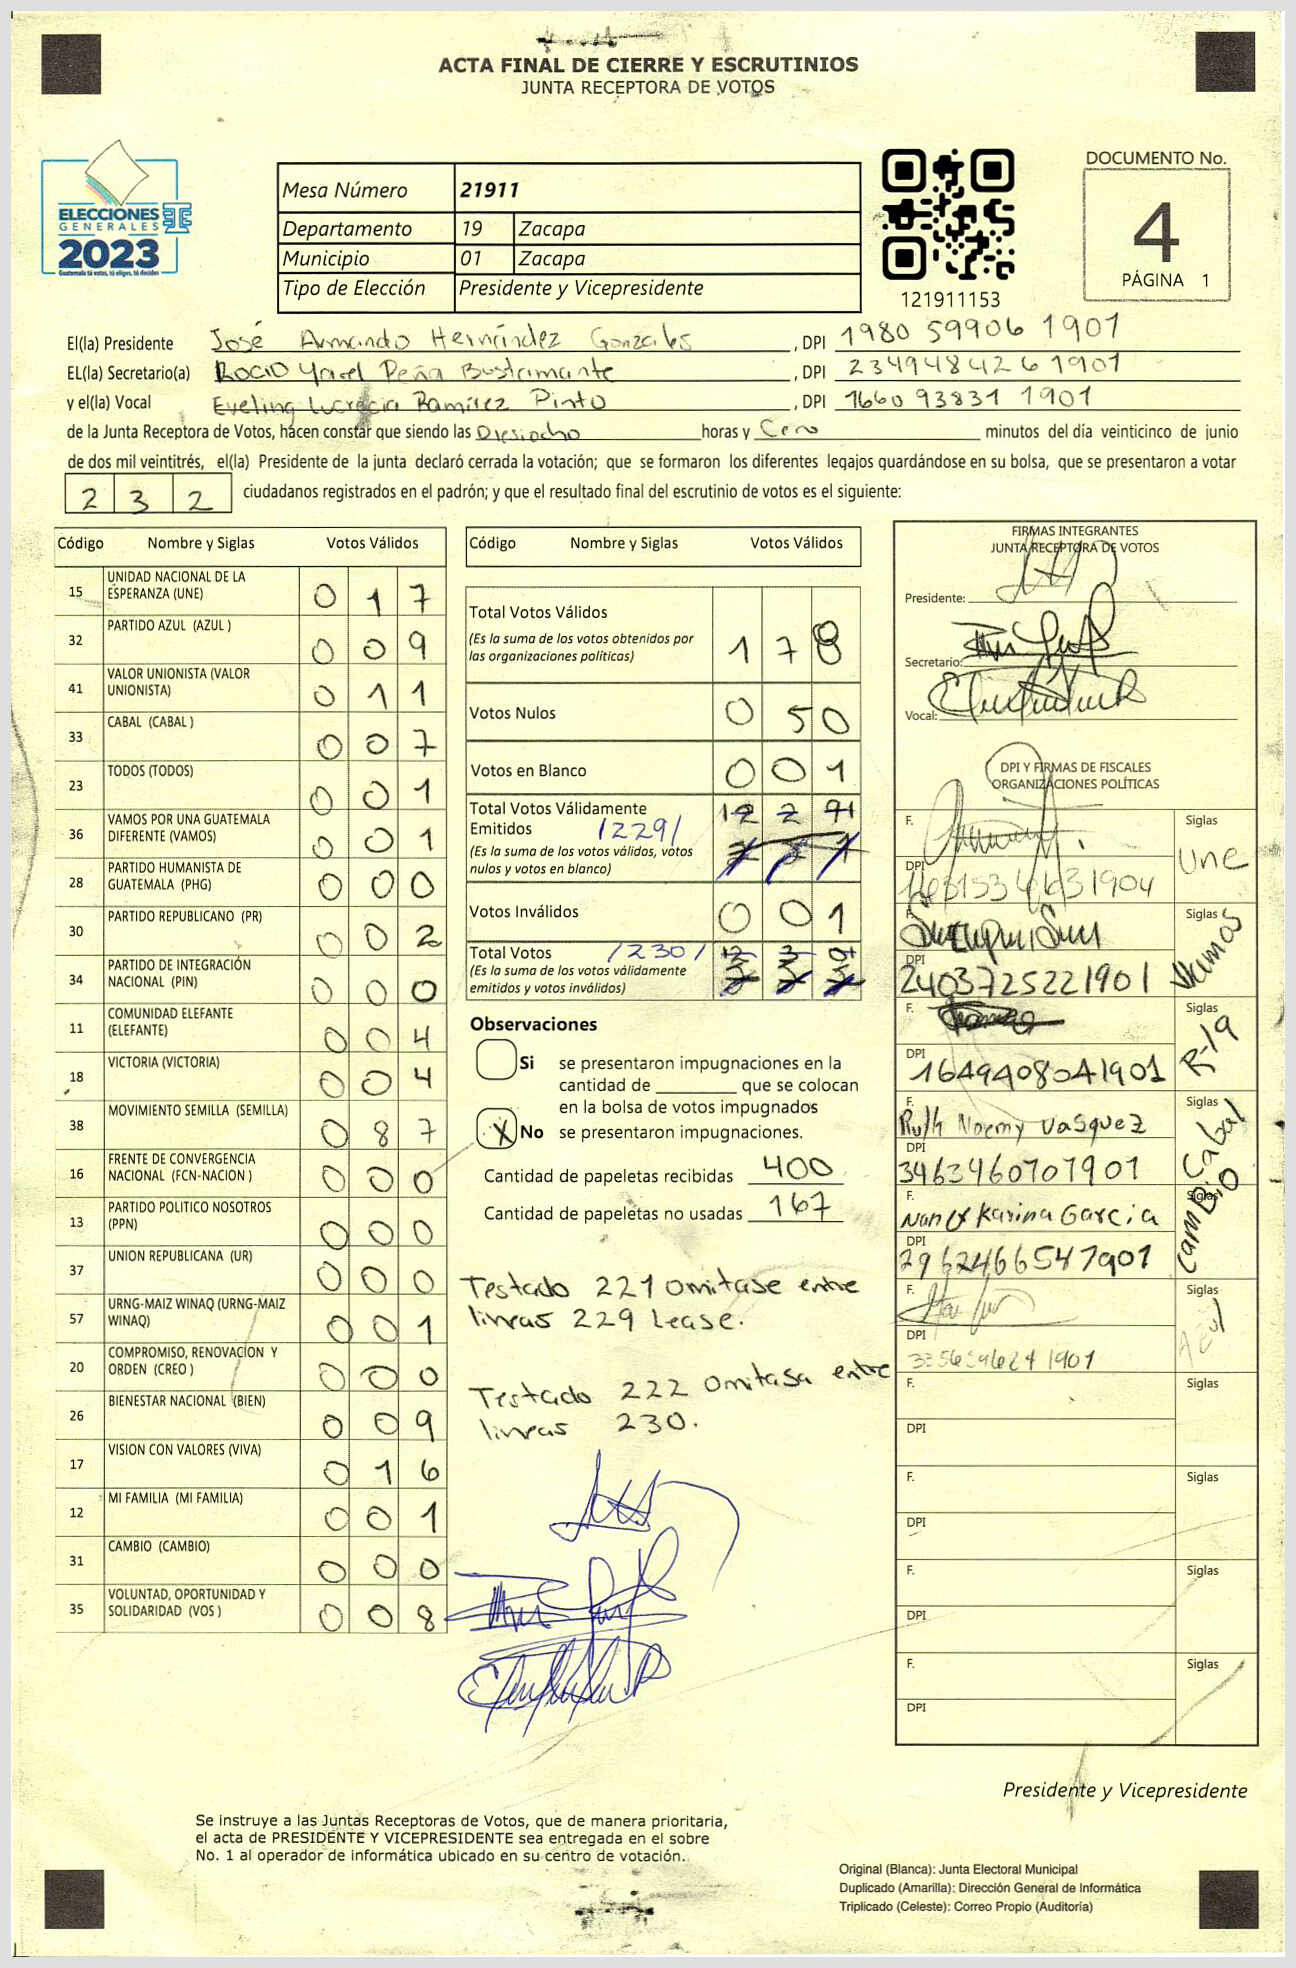 ACTA FINAL DE CIERRE Y ESCRUTINIOS
JUNTA RECEPTORA DE VOTOS
ELECCIONES
GENERALES
2023
Guatemala tú votas, tú eliges, tú decides
Mesa Número 21911
Departamento 19 Zacapa
Municipio 01 Zacapa
Tipo de Elección Presidente y Vicepresidente
121911153
DOCUMENTO No.
4
PÁGINA 1
El(la) Presidente José Armando Hernández Gonzales, DPI 1980 59906 1901
EL(la) Secretario(a) Rocio Yarel Peña Bustamante, DPI 2349484261901
y el(la) Vocal Eveling Lucrecia Ramírez Pinto, DPI 1660 93831 1901
de la Junta Receptora de Votos, hacen constar que siendo las Diesiocho horas y Cero minutos del día veinticinco de junio
de dos mil veintitrés, el(la) Presidente de la junta declaró cerrada la votación; que se formaron los diferentes legajos guardándose en su bolsa, que se presentaron a votar
232 ciudadanos registrados en el padrón; y que el resultado final del escrutinio de votos es el siguiente:
Código Nombre y Siglas Votos Válidos
15 UNIDAD NACIONAL DE LA ESPERANZA (UNE) 0 1 7
32 PARTIDO AZUL (AZUL ) 0 0 9
41 VALOR UNIONISTA (VALOR UNIONISTA) 0 1 1
33 CABAL (CABAL ) 0 0 7
23 TODOS (TODOS) 0 0 1
36 VAMOS POR UNA GUATEMALA DIFERENTE (VAMOS) 0 0 1
28 PARTIDO HUMANISTA DE GUATEMALA (PHG) 0 0 0
30 PARTIDO REPUBLICANO (PR) 0 0 2
34 PARTIDO DE INTEGRACIÓN NACIONAL (PIN) 0 0 0
11 COMUNIDAD ELEFANTE (ELEFANTE) 0 0 4
18 VICTORIA (VICTORIA) 0 0 4
38 MOVIMIENTO SEMILLA (SEMILLA) 0 8 7
16 FRENTE DE CONVERGENCIA NACIONAL (FCN-NACION ) 0 0 0
13 PARTIDO POLITICO NOSOTROS (PPN) 0 0 0
37 UNION REPUBLICANA (UR) 0 0 0
57 URNG-MAIZ WINAQ (URNG-MAIZ WINAQ) 0 0 1
20 COMPROMISO, RENOVACION Y ORDEN (CREO ) 0 0 0
26 BIENESTAR NACIONAL (BIEN) 0 0 9
17 VISION CON VALORES (VIVA) 0 1 6
12 MI FAMILIA (MI FAMILIA) 0 0 1
31 CAMBIO (CAMBIO) 0 0 0
35 VOLUNTAD, OPORTUNIDAD Y SOLIDARIDAD (VOS ) 0 0 8
Código Nombre y Siglas Votos Válidos
Total Votos Válidos 1 7 8
(Es la suma de los votos obtenidos por
las organizaciones políticas)
Votos Nulos 0 5 0
Votos en Blanco 0 0 1
Total Votos Válidamente
Emitidos /229/
(Es la suma de los votos válidos, votos
nulos y votos en blanco)
Votos Inválidos 0 0 1
Total Votos /230/
(Es la suma de los votos válidamente
emitidos y votos inválidos)
Observaciones
Si se presentaron impugnaciones en la
cantidad de ________ que se colocan
en la bolsa de votos impugnados
X No se presentaron impugnaciones.
Cantidad de papeletas recibidas 400
Cantidad de papeletas no usadas 167
Testado 221 Omitase entre
lineas 229 Lease.
Testado 222 Omitasa entre
lineas 230.
FIRMAS INTEGRANTES
JUNTA RECEPTORA DE VOTOS
Presidente:
Secretario:
Vocal:
DPI Y FIRMAS DE FISCALES
ORGANIZACIONES POLÍTICAS
F. Siglas Une
DPI
F. Siglas Vamos
DPI 2403725221901
F. Siglas R-19
DPI 1649408041901
F. Ruth Noemy Vasquez Siglas Cabal
DPI 3463460701901
F. Nancy Karina Garcia Siglas CamBiO
DPI 2962466541901
F. Siglas Azul
DPI
F. Siglas
DPI
F. Siglas
DPI
F. Siglas
DPI
F. Siglas
DPI
Presidente y Vicepresidente
Se instruye a las Juntas Receptoras de Votos, que de manera prioritaria,
el acta de PRESIDENTE Y VICEPRESIDENTE sea entregada en el sobre
No. 1 al operador de informática ubicado en su centro de votación.
Original (Blanca): Junta Electoral Municipal
Duplicado (Amarilla): Dirección General de Informática
Triplicado (Celeste): Correo Propio (Auditoría)